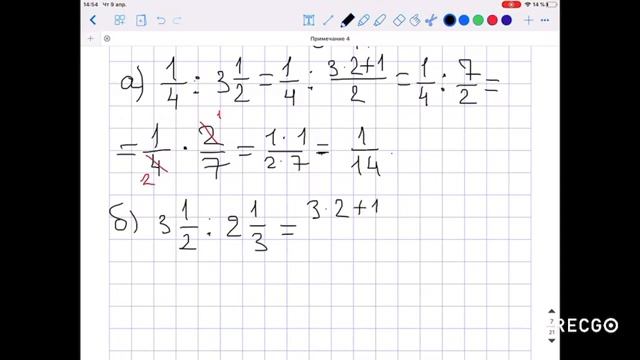 14:54 Чт 9 апр.
14 %
Примечание 4
а) 1/4 : 3 1/2 = 1/4 : (3·2+1)/2 = 1/4 : 7/2 =
= 1/4 · 2/7 = (1·1)/(2·7) = 1/14
1
2
б) 3 1/2 : 2 1/3 = 3·2+1
7
21
RECGO